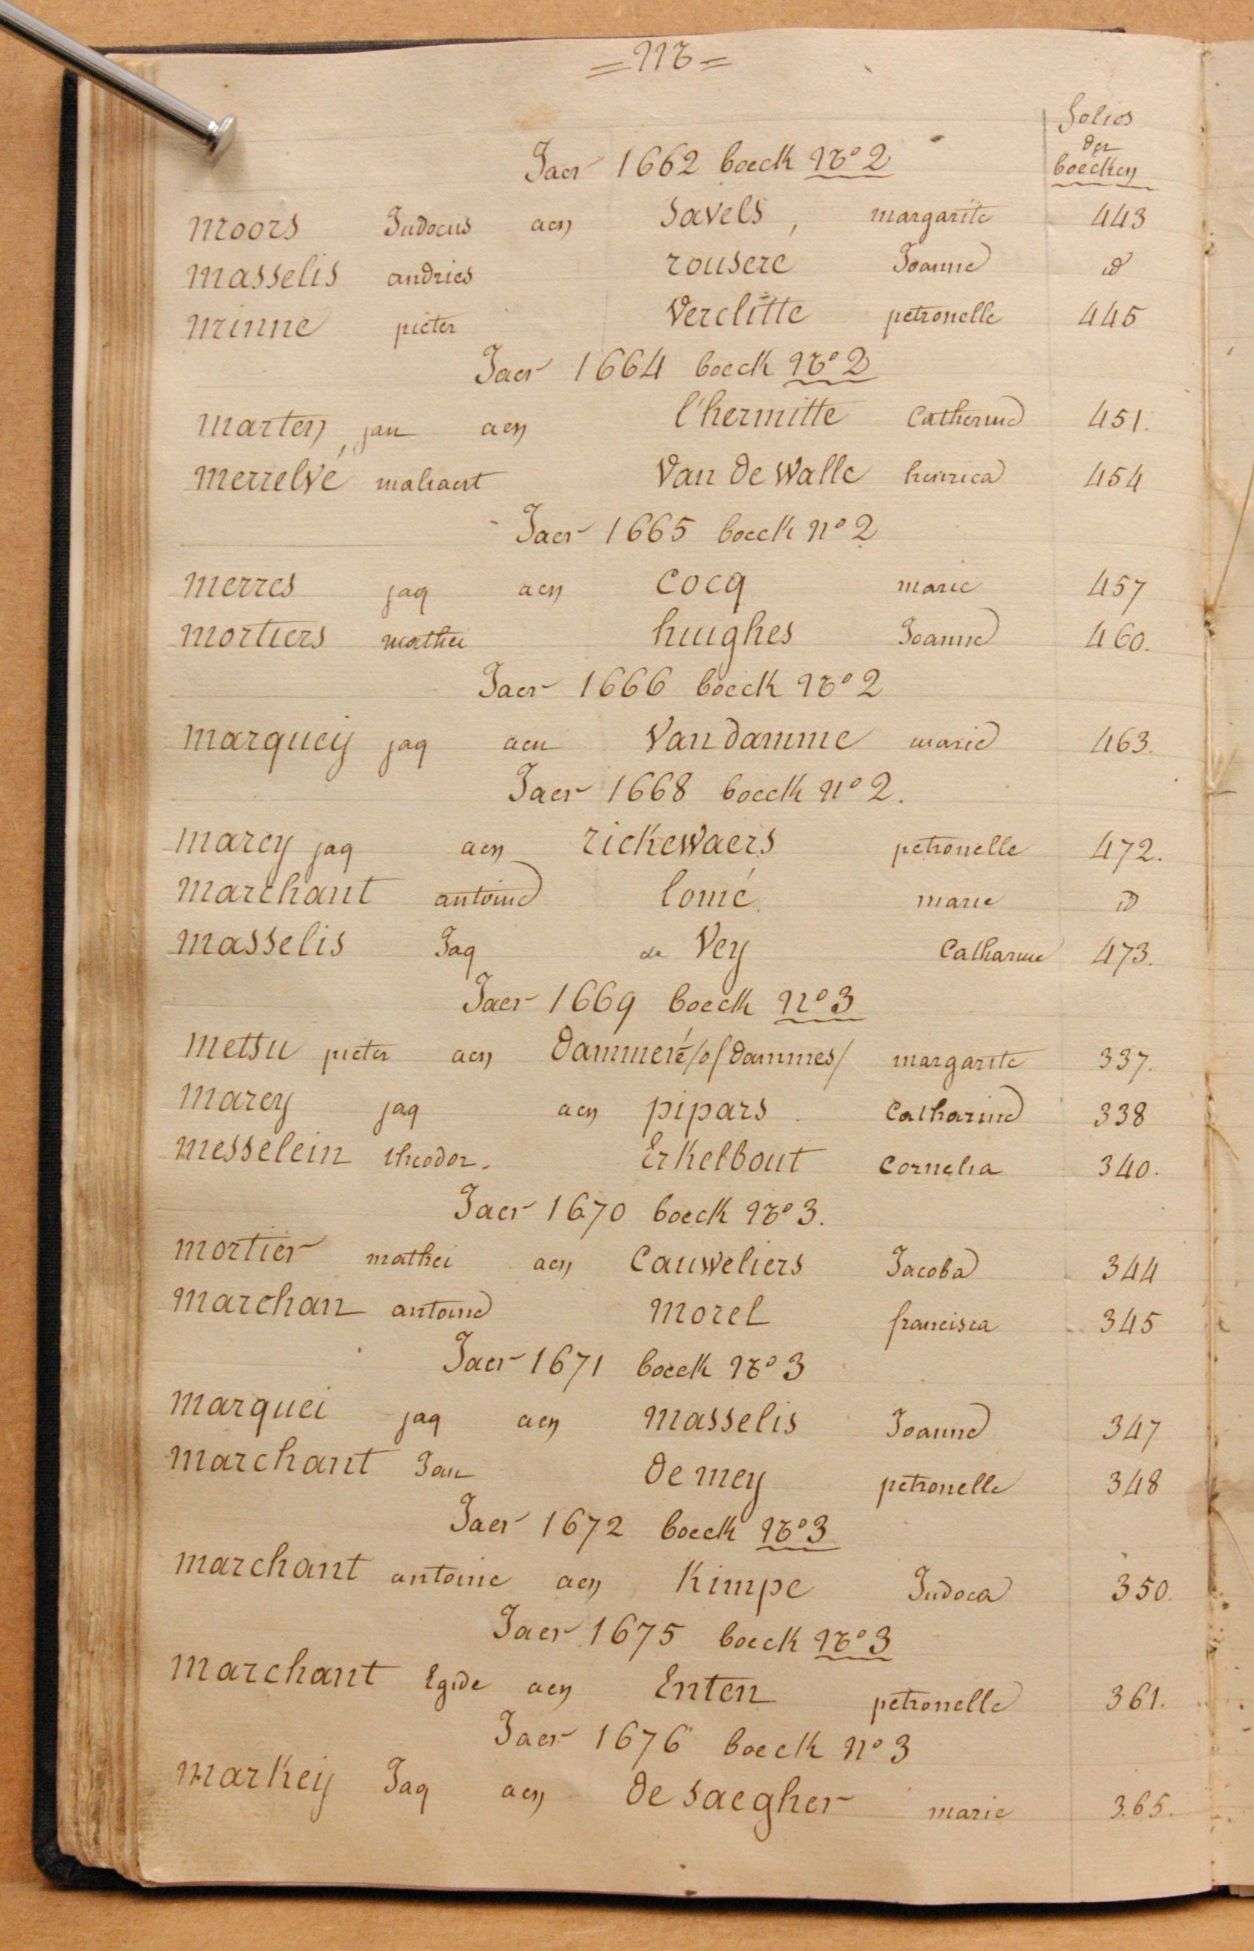 Folios
der
boecken
Jaer 1662 boeck No 2
moors Judocus aen Savels, margarite 443
masselis andries rousere Joanne id
minne pieter Verclitte petronelle 445
Jaer 1664 boeck No 2
marten, jan aen l'hermitte Catherine 451.
merrelvé maliaert Van de Walle henrica 454
Jaer 1665 boeck no 2
merres jaq aen Cocq marie 457
mortiers mathei huughes Joanne 460.
Jaer 1666 boeck No 2
marqueij jaq aen Van damme marie 463.
Jaer 1668 boeck no 2.
marcy jaq aen rickewaers petronelle 472.
marchant antoine lomé marie id
masselis Jaq de Vey Catharine 473.
Jaer 1669 boeck no 3
metsu pieter aen dammeré /of dammes/ margarite 337.
marcy jaq aen pipars Catharine 338
messelein theodor. Erkelbout Cornelia 340.
Jaer 1670 boeck No 3.
mortier mathei aen Cauweliers Jacoba 344
marchan antoine morel francisca 345
Jaer 1671 boeck No 3
marquei jaq aen masselis Joanne 347
marchant Jan de mey petronelle 348
Jaer 1672 boeck No 3
marchant antoine aen Kimpe Judoca 350.
Jaer 1675 boeck No 3
marchant Egide aen Enten petronelle 361.
Jaer 1676 boeck no 3
markeij Jaq aen de saegher marie 365.